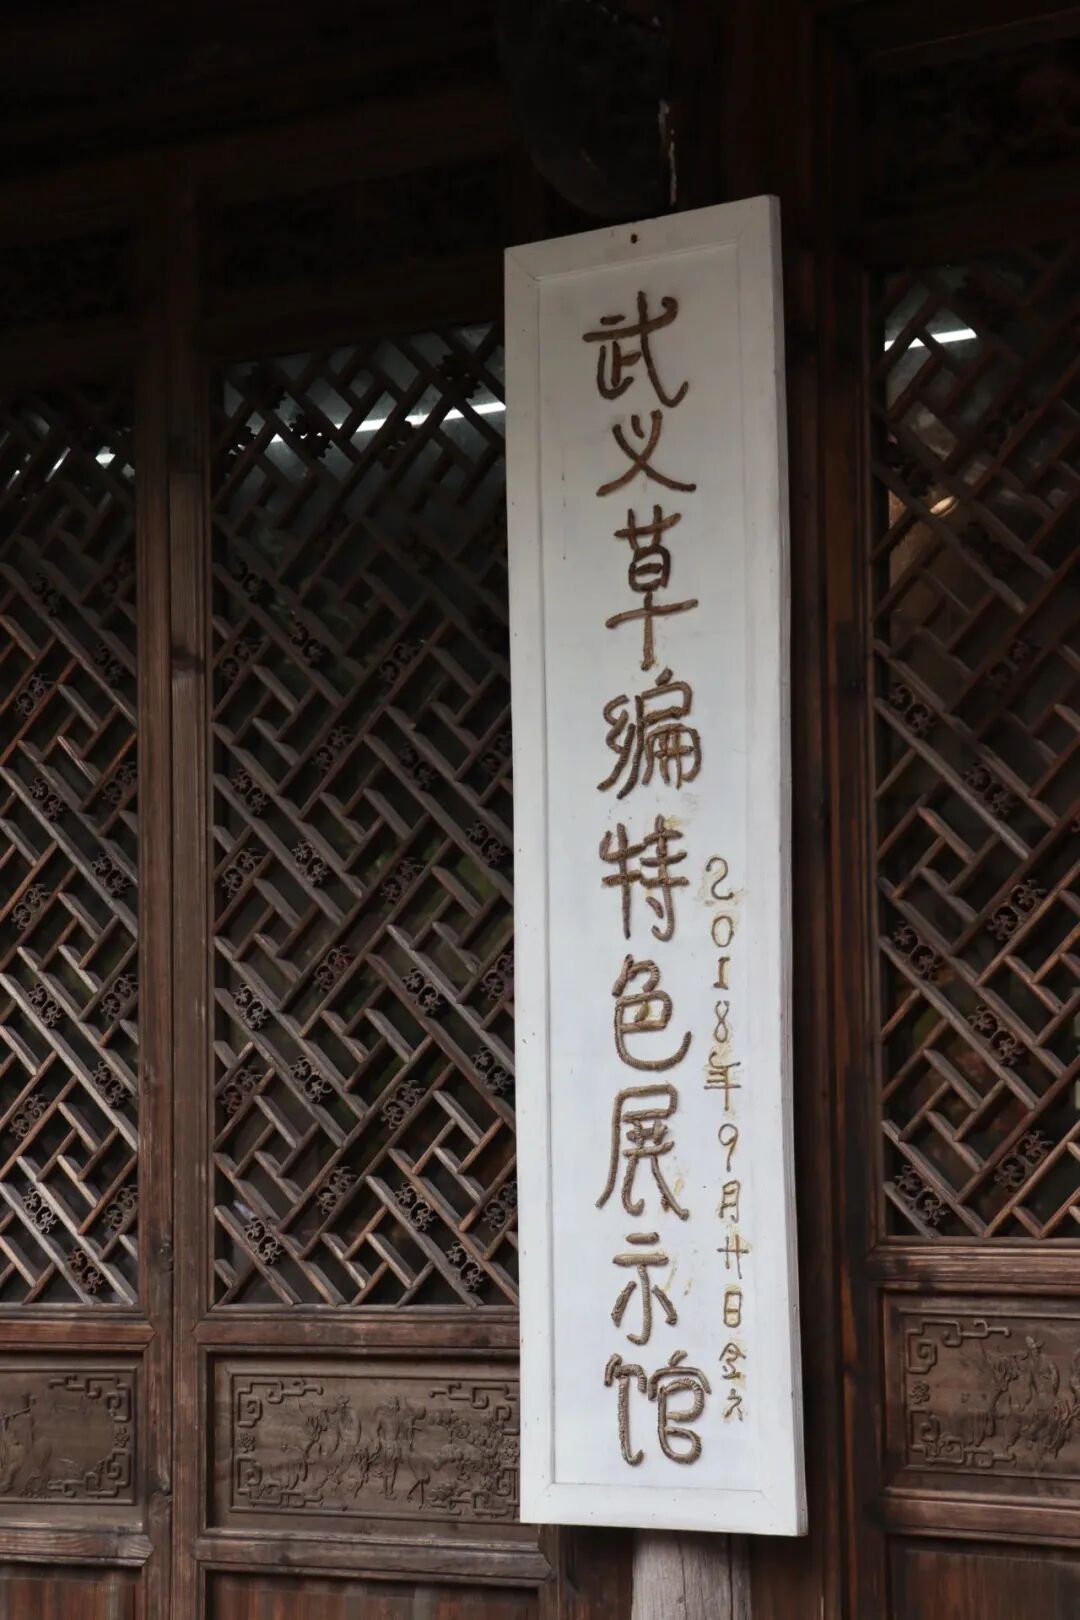 武义草编特色展示馆
2018年9月廿日金六